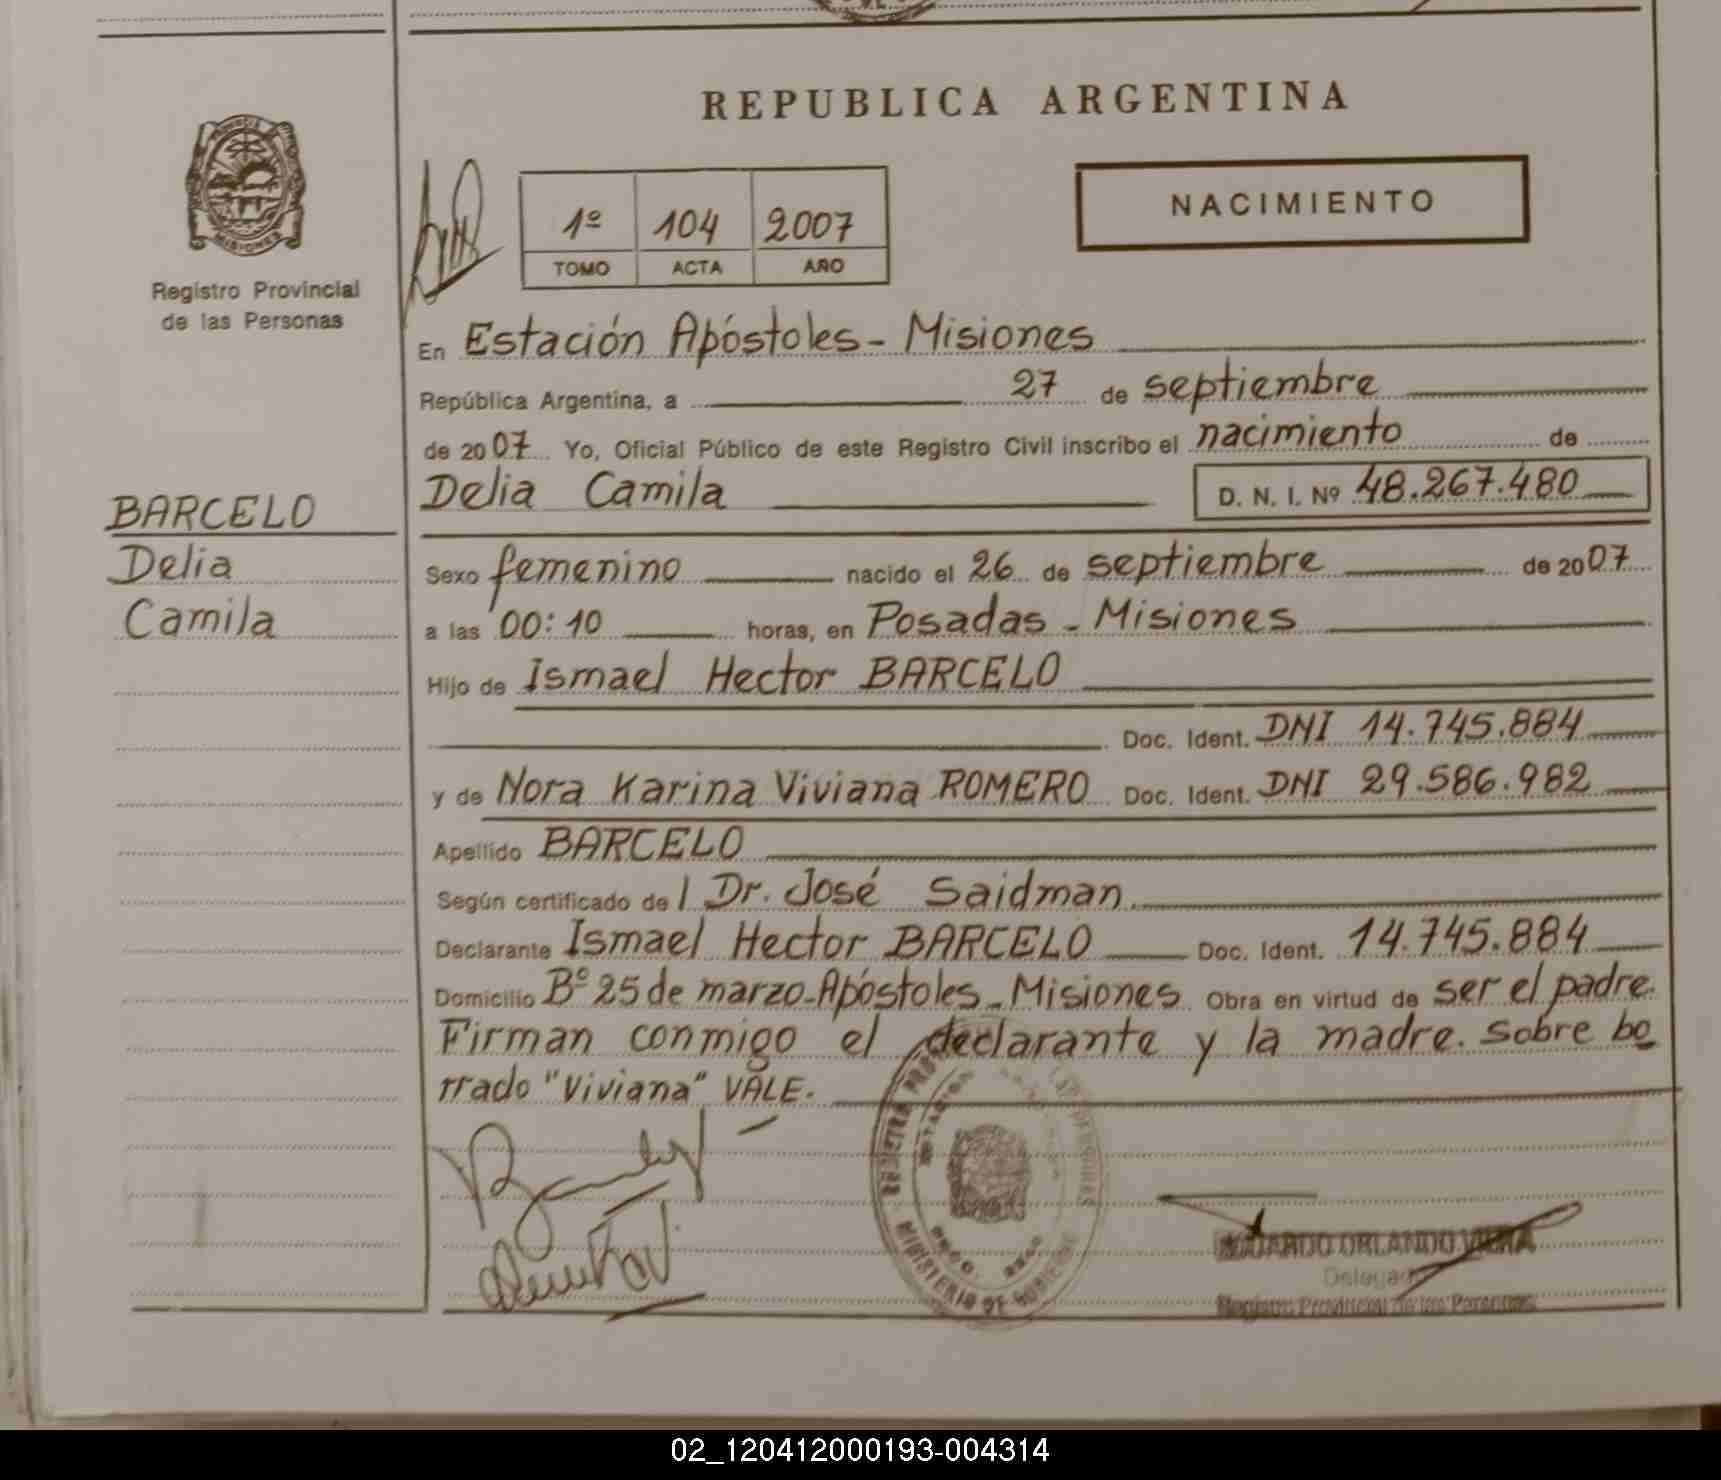 REPUBLICA ARGENTINA
PROVINCIA
MISIONES
Registro Provincial
de las Personas
1º 104 2007
TOMO ACTA AÑO
NACIMIENTO
En Estación Apóstoles - Misiones
República Argentina, a 27 de septiembre
de 2007 Yo, Oficial Público de este Registro Civil inscribo el nacimiento de
Delia Camila D. N. I. Nº 48.267.480
BARCELO
Delia
Camila
Sexo femenino nacido el 26 de septiembre de 2007
a las 00:10 horas, en Posadas - Misiones
Hijo de Ismael Hector BARCELO
Doc. Ident. DNI 14.745.884
y de Nora Karina Viviana ROMERO Doc. Ident. DNI 29.586.982
Apellido BARCELO
Según certificado de l Dr. José Saidman.
Declarante Ismael Hector BARCELO Doc. Ident. 14.745.884
Domicilio Bº 25 de marzo - Apóstoles - Misiones Obra en virtud de ser el padre.
Firman conmigo el declarante y la madre. Sobre bo
rrado "Viviana" VALE.
MINISTERIO DE GOBIERNO
EDUARDO ORLANDO VIERA
Delegado
Registro Provincial de las Personas
02_120412000193-004314